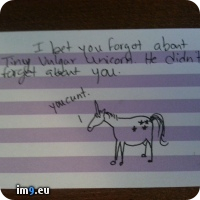 I bet you forgot about
Tiny Vulgar Unicorn. He didn't
forget about you.
you cunt.
im9.eu